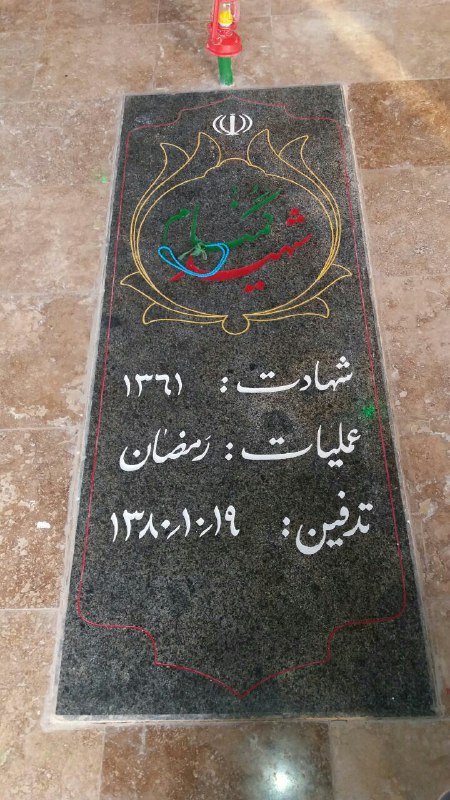 شهید گمنام
شهادت: ۱۳۶۱
عملیات: رَمضان
تدفین: ۱۳۸۰٫۱۰٫۱۹